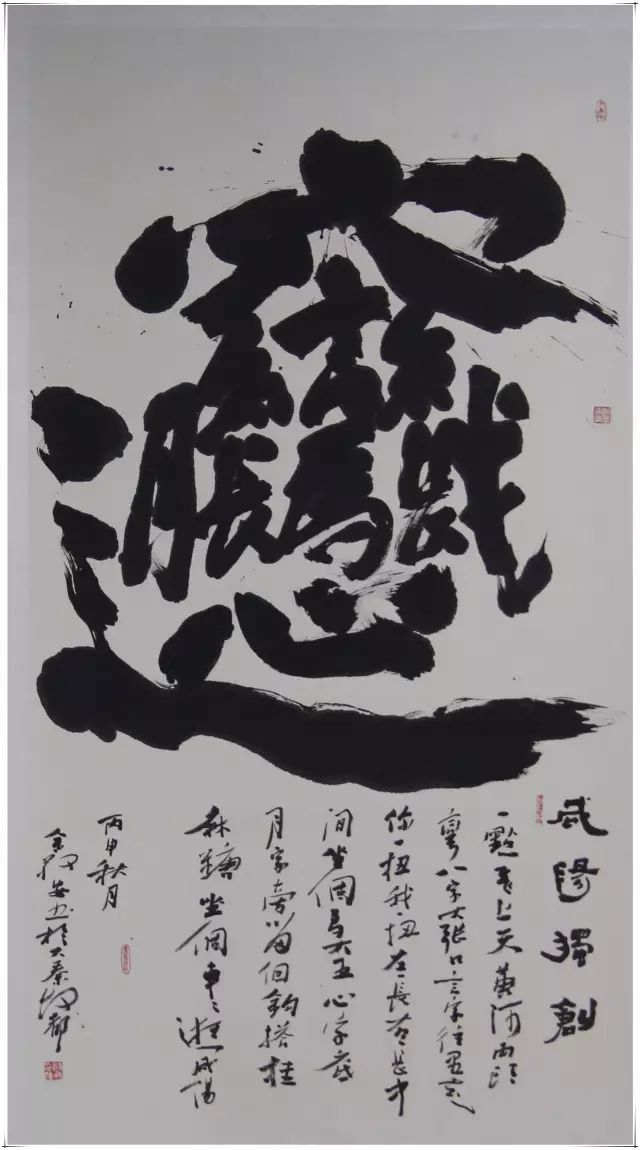 𰻞
咸陽獨創
一點飛上天黄河兩頭
彎八字大張口言字往里走
你一扭我一扭左長右長中
间坐個馬大王心字底
月字旁留個鈎搭挂
麻糖坐個車〻遊咸陽
丙申秋月
安书於大秦故都